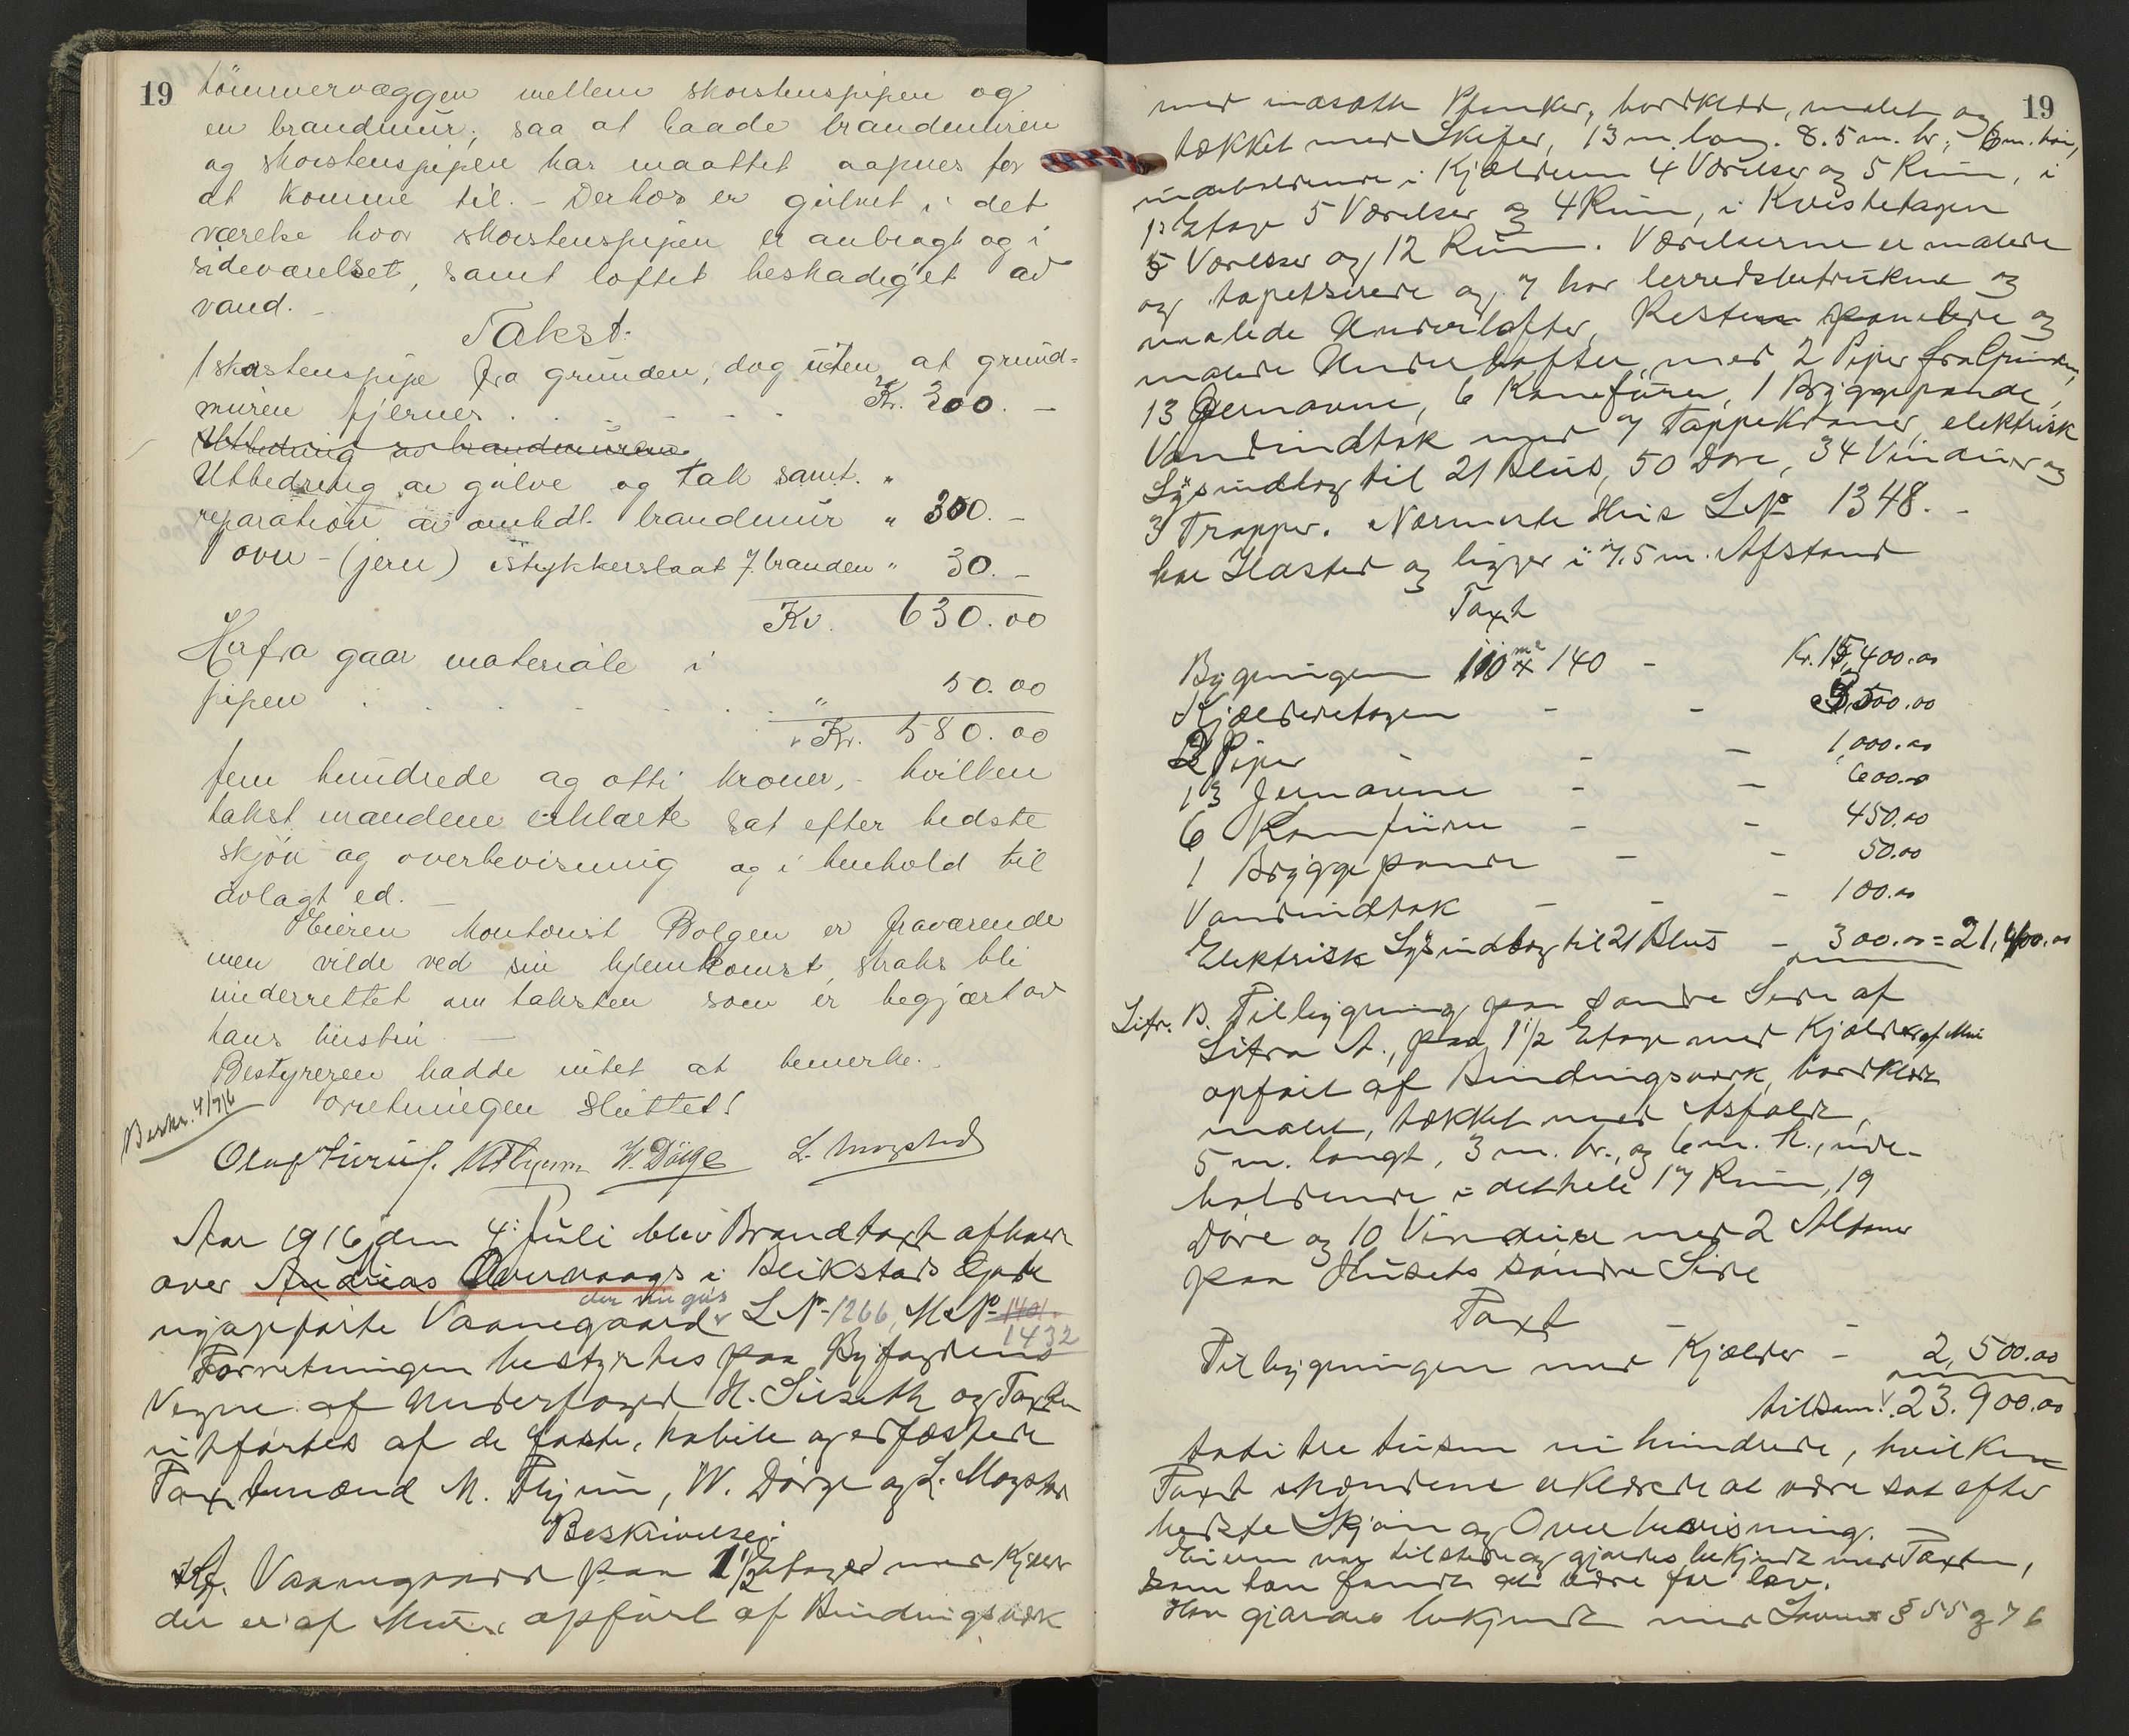 19
tömmervæggen mellem skorstenspipen og
en brandmur, saa at baade brandmuren
og skorstenspipen har maattet aapnes for
at komme til. – Derhos er gulvet i det
værelse hvor skorstenspipen er anbragt og i
sideværelset, samt loftet beskadiget av
vand. –
Takst.
1 skorstenspipe fra grunden, dog uten at grund-
muren fjernes . . . . . Kr. 300. –
Utbedring av brandmuren
Utbedring av gulve og tak samt. "
reparation av omhdl. brandmur " 300. –
1 ovn – (jern) istykkerslaat f. branden " 30. –
Kr. 630.00
Herfra gaar materiale i
pipen . . . . . " 50.00
Kr. 580.00
fem hundrede og otti kroner, – hvilken
takst mændene erklærte sat efter bedste
skjön og overbevisning og i henhold til
avlagt ed. –
Eieren kontorist Bolgen er fraværende
men vilde ved sin hjemkomst straks bli
underrettet om taksten som er begjært av
hans hustru. –
Bestyreren hadde intet at bemerke. –
Beskr. 4/7 16
Forretningen sluttet!
W. Dörge L. Mogstad
Aar 1916 den 4. Juli blev Brandtaxt afholdt
over Andreas Overvaags i Blikstads Gade
der nu gives
nyopførte Vaanegaard L№ 1266, M№ 1401.
1432
Forretningen bestyrtes paa Byfogdens
Vegne af Underfoged H. Siiseth og Taxten
utførtes af de faste, habile og edfæstede
Taxtmænd M. Thjem, W. Dörge og L. Mogstad
Beskrivelse:
A. Vaanegaard paa 1 1/2 Etager med Kjelder
der er af Mur, opført af Bindingsværk
19
med indsatte Planker, bordklædt, malet og
tækket med Skifer, 13 m. lang. 8.5 m. br., 6 m. høi,
indeholdende i Kjælderen 4 Værelser og 5 Rum, i
1ste Etage 5 Værelser og 4 Rum, i Kvistetagen
5 Værelser og 12 Rum. Værelserne er malede
og tapetserede og 7 har lerredsbetrukne og
malede Underlofter, Resten panelede og
malede Underlofter, med 2 Piper fra Grunden,
13 Jernovne, 6 Komfurer, 1 Bryggepande,
Vandindtak med 7 Tappekraner, elektrisk
Lysindlæg til 21 Blus, 50 Døre, 34 Vinduer og
3 Trapper. Nærmeste Hus L№ 1348. –
har Ildsted og ligger i 7.5 m. Afstand
Taxt
Bygningen 110 m² x 140 – Kr. 15,400.00
Kjælderetagen – – 3,500.00
2 Piper – – 1,000.00
13 Jernovne – – 600.00
6 Komfurer – – 450.00
1 Bryggepande – – 50.00
Vandindtak – – – 100.00
Elektrisk Lysindlæg til 21 Blus – 300.00 = 21,400.00
Litr. B. Tilbygning paa søndre Side af
Litra A., paa 1 1/2 Etage med Kjelder af Mur
opført af Bindingsværk, bordklædt
malet, tækket med Asfalt,
5 m. langt, 3 m. br., og 6 m. h., inde-
holdende i det hele 17 Rum, 19
Døre og 10 Vinduer med 2 Altaner
paa Husets søndre Side
Taxt
Tilbygningen med Kjælder – 2,500.00
tilsam. 23.900.00
toti tre tusen ni hundrede, hvilken
Taxt Mændene erklærede at være sat efter
bedste Skjøn og Overbevisning.
Eieren var tilstede og gjordes bekjendt med Taxten,
som han fandt at være for lav.
Han gjordes bekjendt med Lovens § 55 og 76